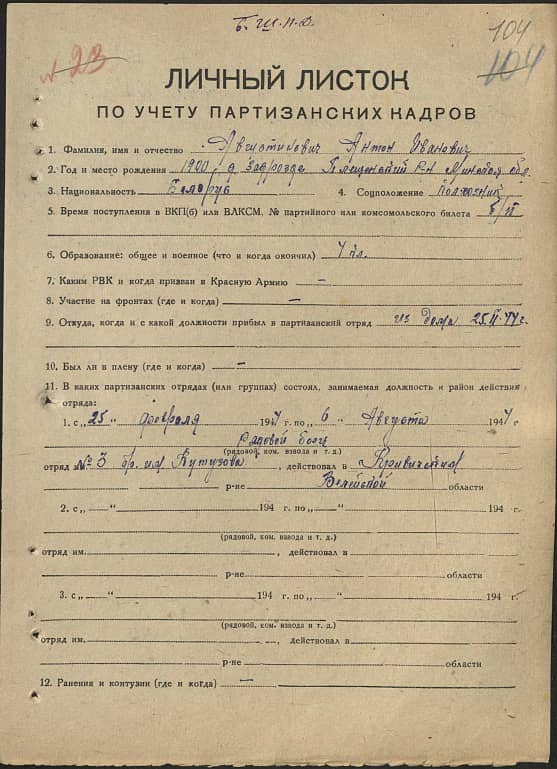 Б.Ш.П.Д.
104
№ 23
104
ЛИЧНЫЙ ЛИСТОК
ПО УЧЕТУ ПАРТИЗАНСКИХ КАДРОВ
1. Фамилия, имя и отчество Августинович Антон Иванович
2. Год и место рождения 1900 д. Плещеницкий р-н Минской обл.
3. Национальность Белорус 4. Соцположение
5. Время поступления в ВКП(б) или ВЛКСМ, № партийного или комсомольского билета б/п
6. Образование: общее и военное (что и когда окончил) 4 кл.
7. Каким РВК и когда призван в Красную Армию —
8. Участие на фронтах (где и когда) —
9. Откуда, когда и с какой должности прибыл в партизанский отряд из дома 25.II.44 г.
10. Был ли в плену (где и когда) —
11. В каких партизанских отрядах (или группах) состоял, занимаемая должность и район действия
отряда:
1. с „25" февраля 1944 г. по „6" Августа 1944 г.
Рядовой боец
(рядовой, ком. взвода и т. д.)
отряд им. №3 бр. им. Кутузова, действовал в
р-не Вилейской области
2. с „ " 194 г. по „ " 194 г.
(рядовой, ком. взвода и т. д.)
отряд им. , действовал в
р-не области
3. с „ " 194 г. по „ " 194 г.
(рядовой, ком. взвода и т. д.)
отряд им. , действовал в
р-не области
12. Ранения и контузии (где и когда) —